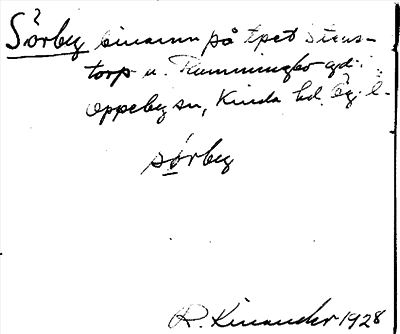 Sörbey binamn på tpet Stens-
torp u. Rummingbo gd.
Oppeby sn, Kinda hd Ög. l.
sörbey
R. Kinander 1928